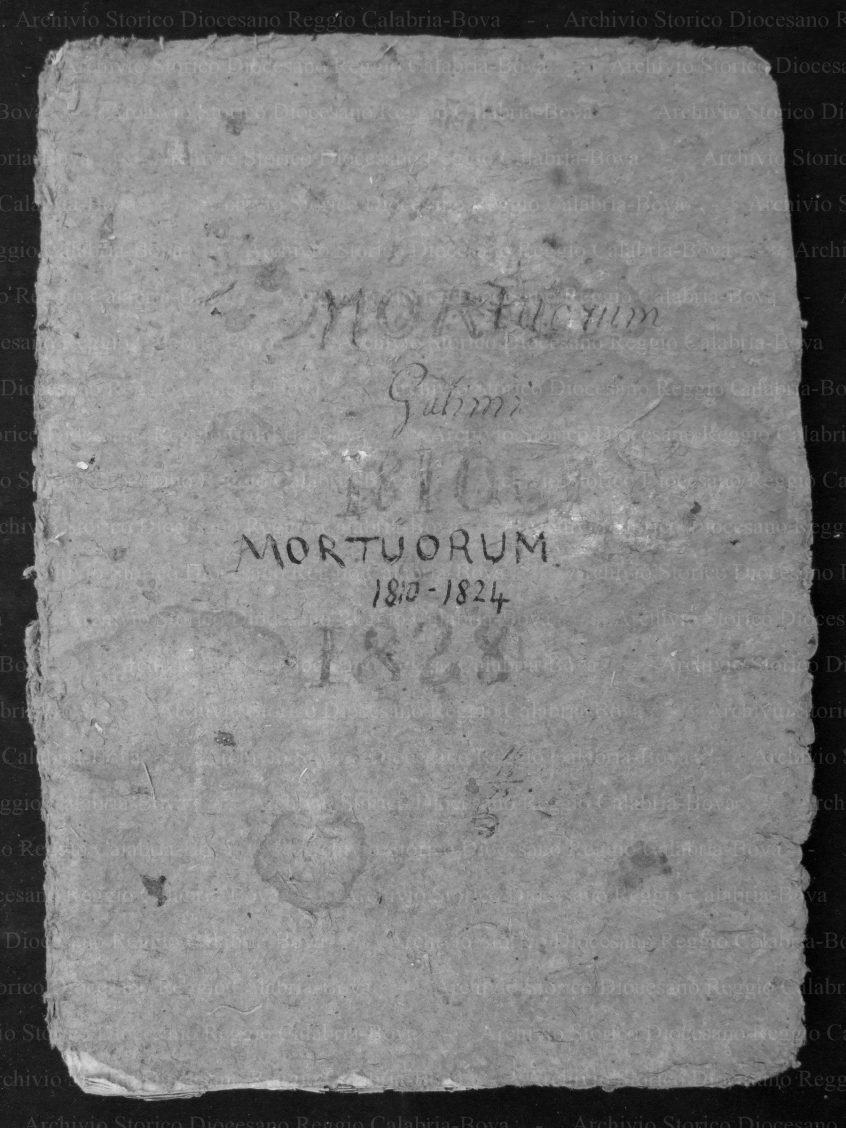 MORTUORUM
Galimi
1810
MORTUORUM.
1810-1824
1828
15
15
Archivio Storico Diocesano Reggio Calabria-Bova